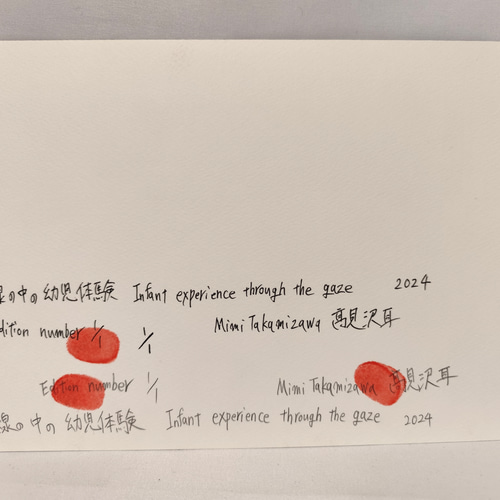 線の中の幼児体験 Infant experience through the gaze 2024
Edition number 1/1 1/1 Mimi Takamizawa 髙見沢耳
Edition number 1/1 Mimi Takamizawa 髙見沢耳
線の中の幼児体験 Infant experience through the gaze 2024